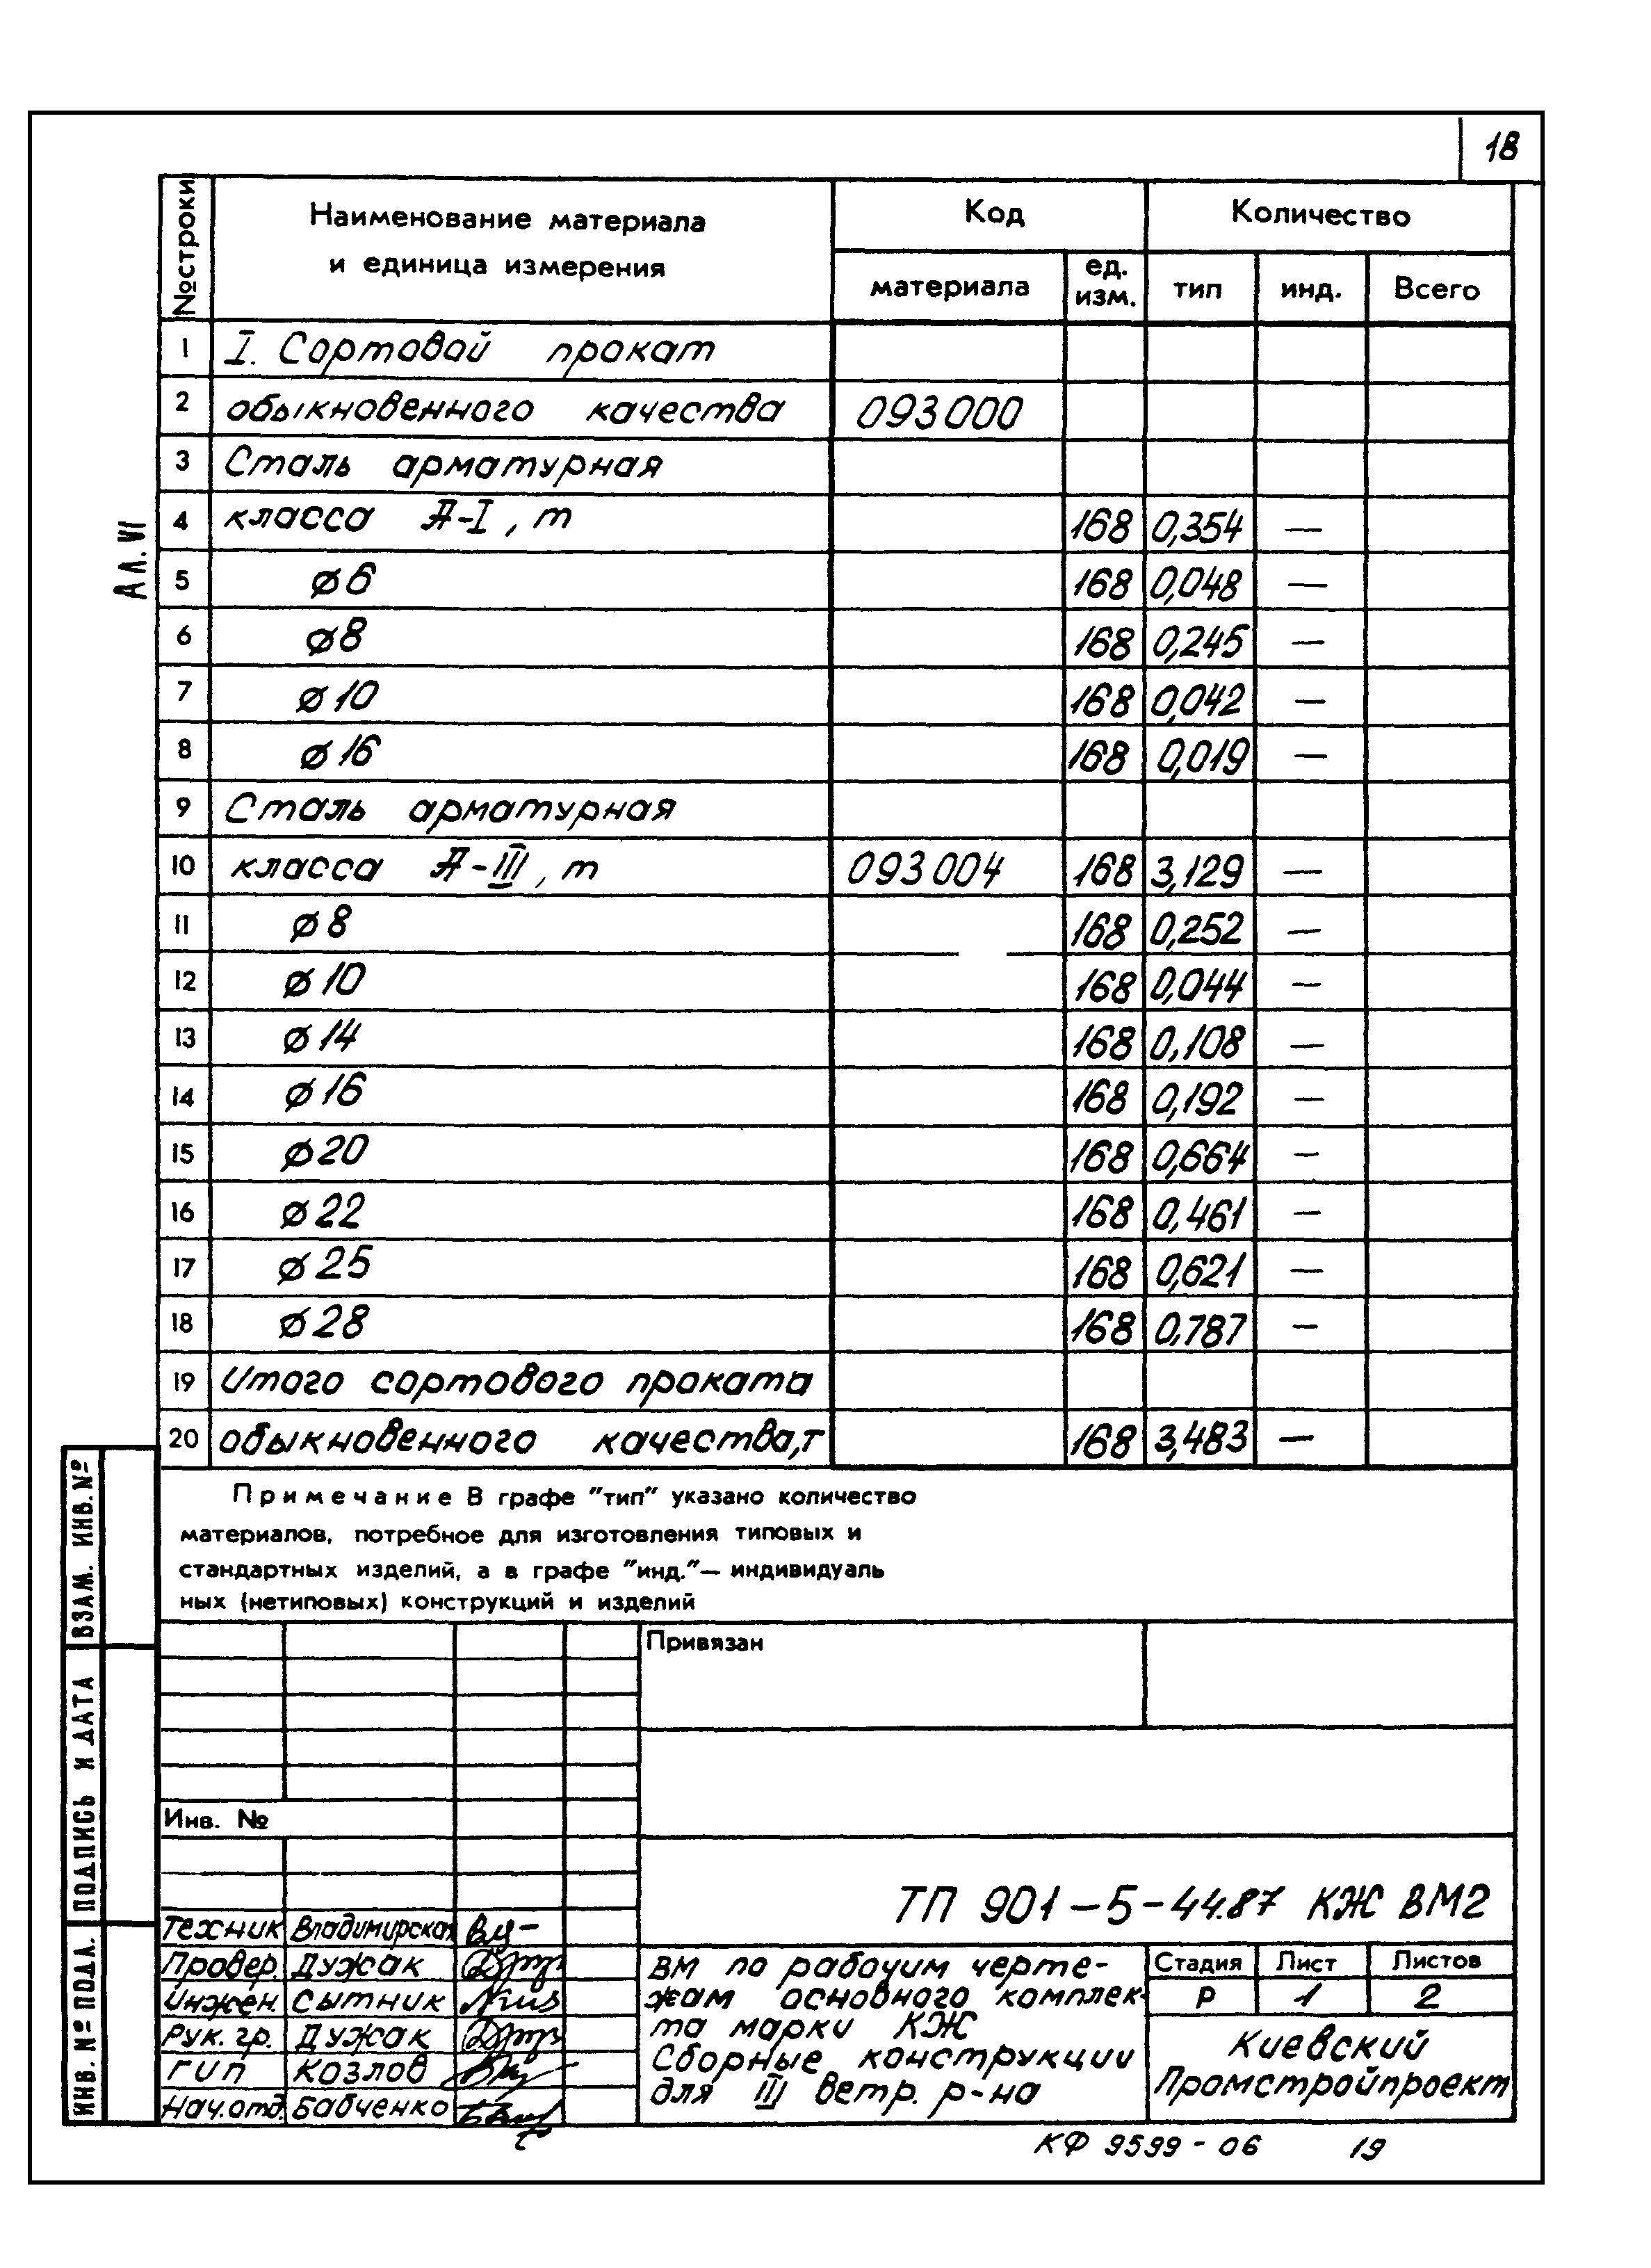 18
№ строки
Наименование материала
и единица измерения
Код
Количество
материала
ед.
изм.
тип
инд.
Всего
1 I. Сортовой прокат
2 обыкновенного качества 093000
3 Сталь арматурная
4 класса А-I, т 168 0,354 —
5 ø6 168 0,048 —
6 ø8 168 0,245 —
7 ø10 168 0,042 —
8 ø16 168 0,019 —
9 Сталь арматурная
10 класса А-III, т 093004 168 3,129 —
11 ø8 168 0,252 —
12 ø10 168 0,044 —
13 ø14 168 0,108 —
14 ø16 168 0,192 —
15 ø20 168 0,664 —
16 ø22 168 0,461 —
17 ø25 168 0,621 —
18 ø28 168 0,787 —
19 Итого сортового проката
20 обыкновенного качества,т 168 3,483 —
Ал. VI
Примечание В графе "тип" указано количество
материалов, потребное для изготовления типовых и
стандартных изделий, а в графе "инд."— индивидуаль
ных (нетиповых) конструкций и изделий
Привязан
Инв. №
ТП 901-5-44.87 КЖ ВМ2
Техник Владимирская
Провер. Дужак
Инжен. Сытник
Рук. гр. Дужак
ГИП Козлов
Нач.отд. Бабченко
ВМ по рабочим черте-
жам основного комплек-
та марки КЖ
Сборные конструкции
для III ветр. р-на
Стадия Лист Листов
Р 1 2
Киевский
Промстройпроект
Взам. инв. №
Подпись и дата
Инв. № подл.
КФ 9599-06 19